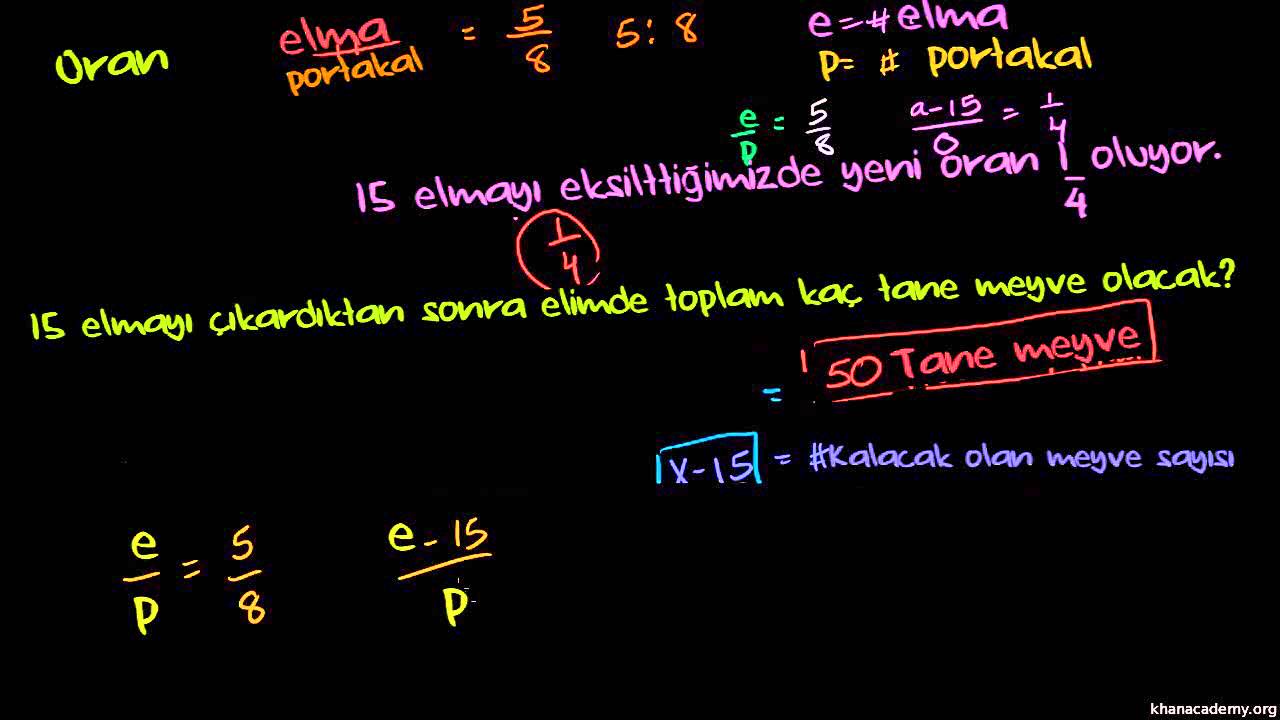 Oran elma/portakal = 5/8 5:8 e=#elma
p= # portakal
e/p = 5/8 a-15/O = 1/4
15 elmayı eksilttiğimizde yeni oran 1/4 oluyor.
1/4
15 elmayı çıkardıktan sonra elimde toplam kaç tane meyve olacak?
= 50 Tane meyve
x-15 = #Kalacak olan meyve sayısı
e/p = 5/8 e-15/p
khanacademy.org